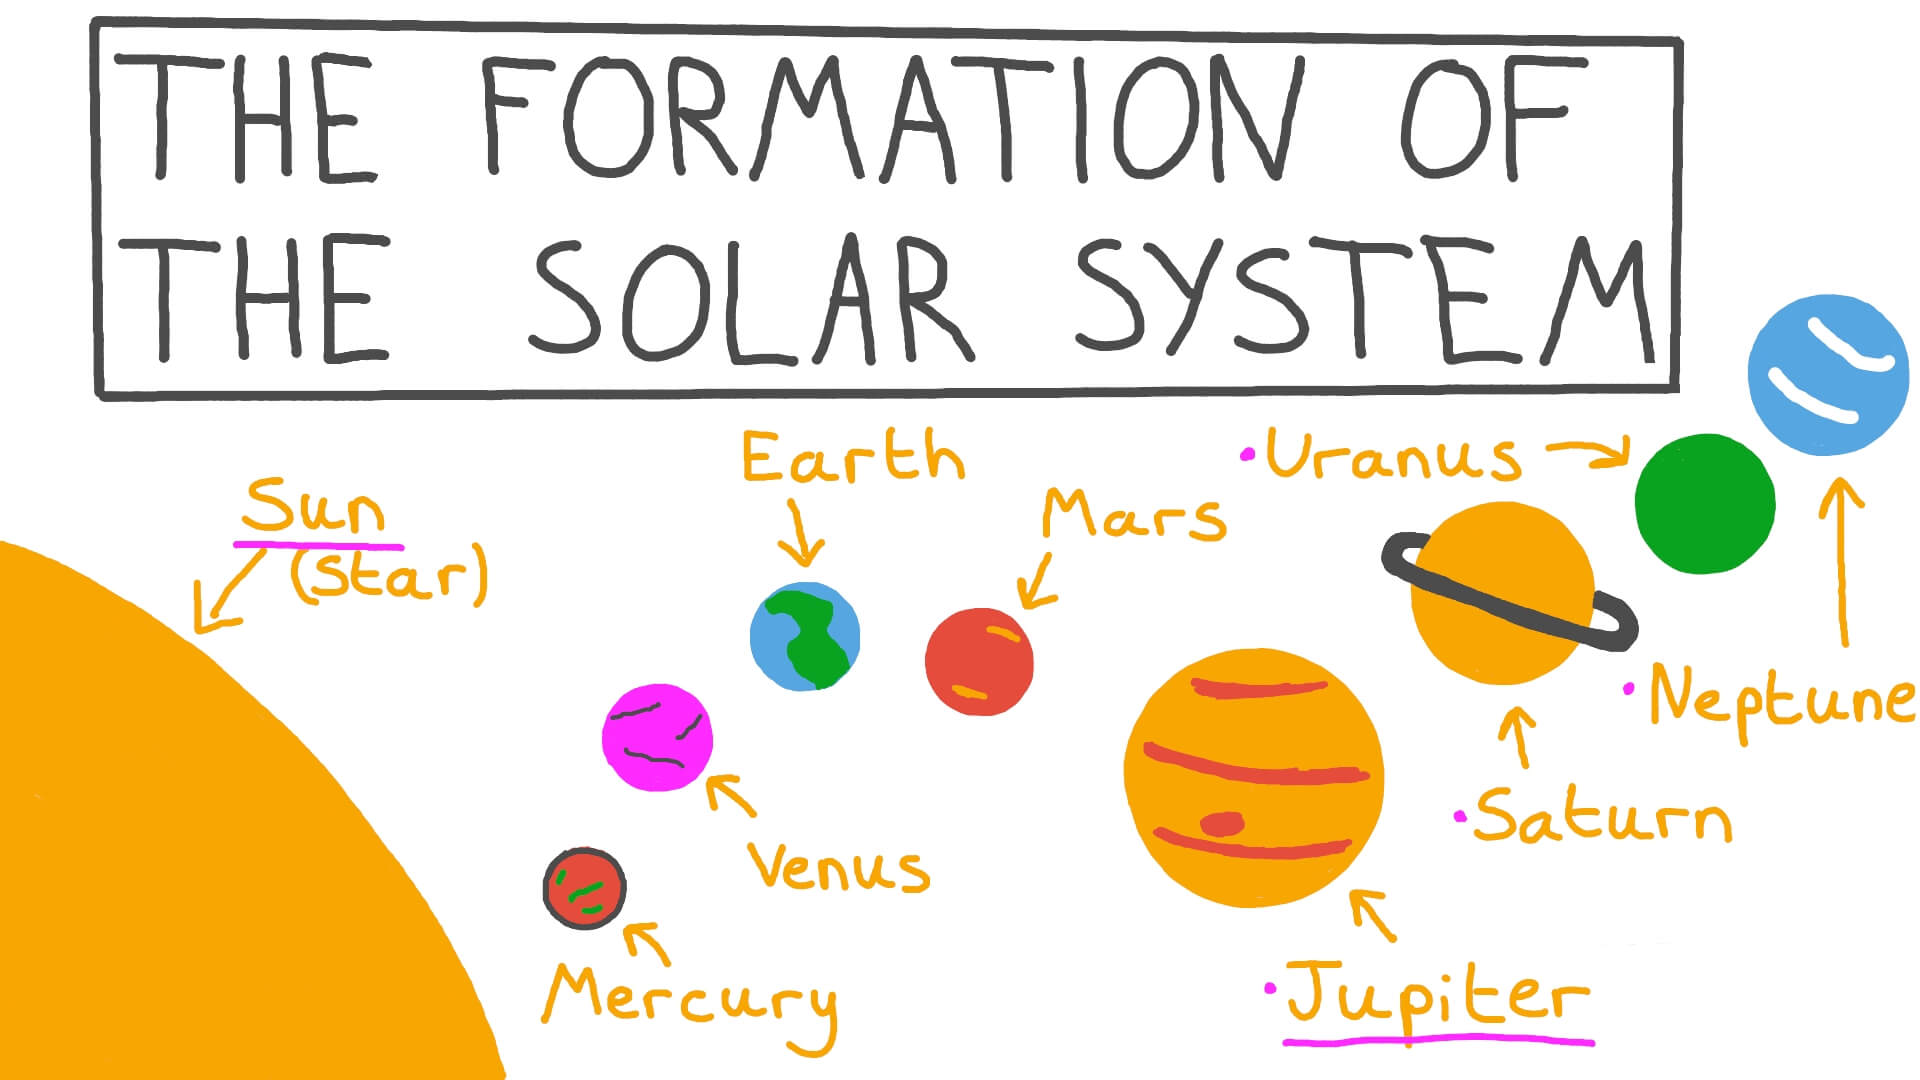 THE FORMATION OF
THE SOLAR SYSTEM
Sun
(star)
Earth
Mars
·Uranus
·Neptune
·Saturn
Venus
Mercury
·Jupiter